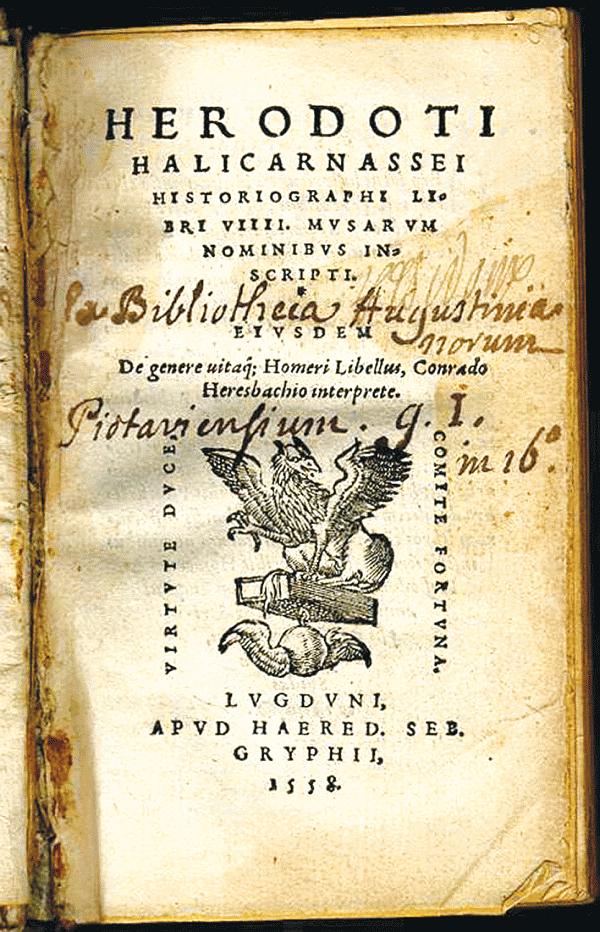 HERODOTI
HALICARNASSEI
HISTORIOGRAPHI LI-
BRI VIIII. MVSARVM
NOMINIBVS IN-
SCRIPTI.
*
Ex Bibliotheca Augustinia-
norum
EIVSDEM
De genere uitaq́; Homeri Libellus, Conrado
Heresbachio interprete.
Pictaviensium. g. I.
in 16°.
VIRTVTE DVCE,
COMITE FORTVNA.
LVGDVNI,
APVD HAERED. SEB.
GRYPHII,
1558.